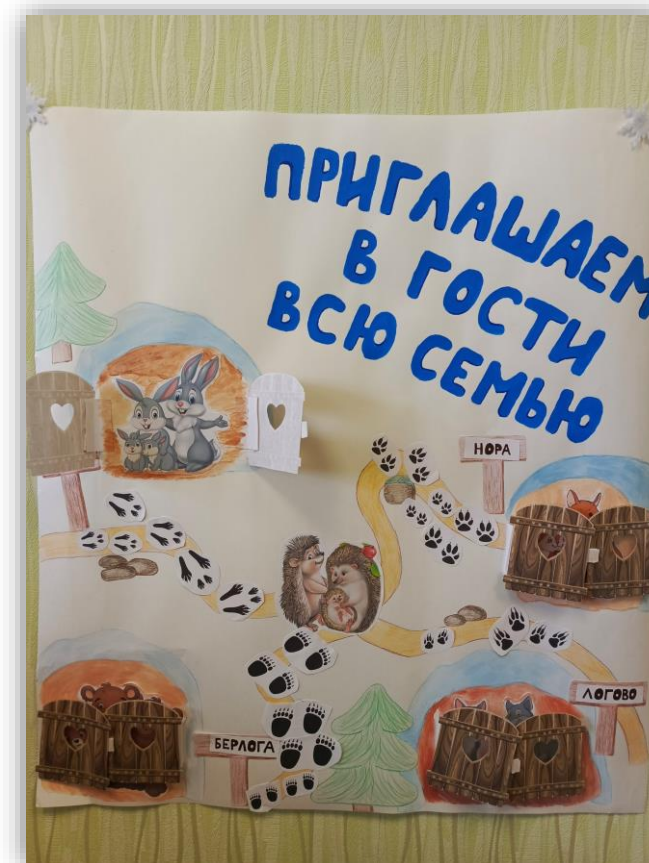 ПРИГЛАШАЕМ
В ГОСТИ
ВСЮ СЕМЬЮ
НОРА
ЛОГОВО
БЕРЛОГА